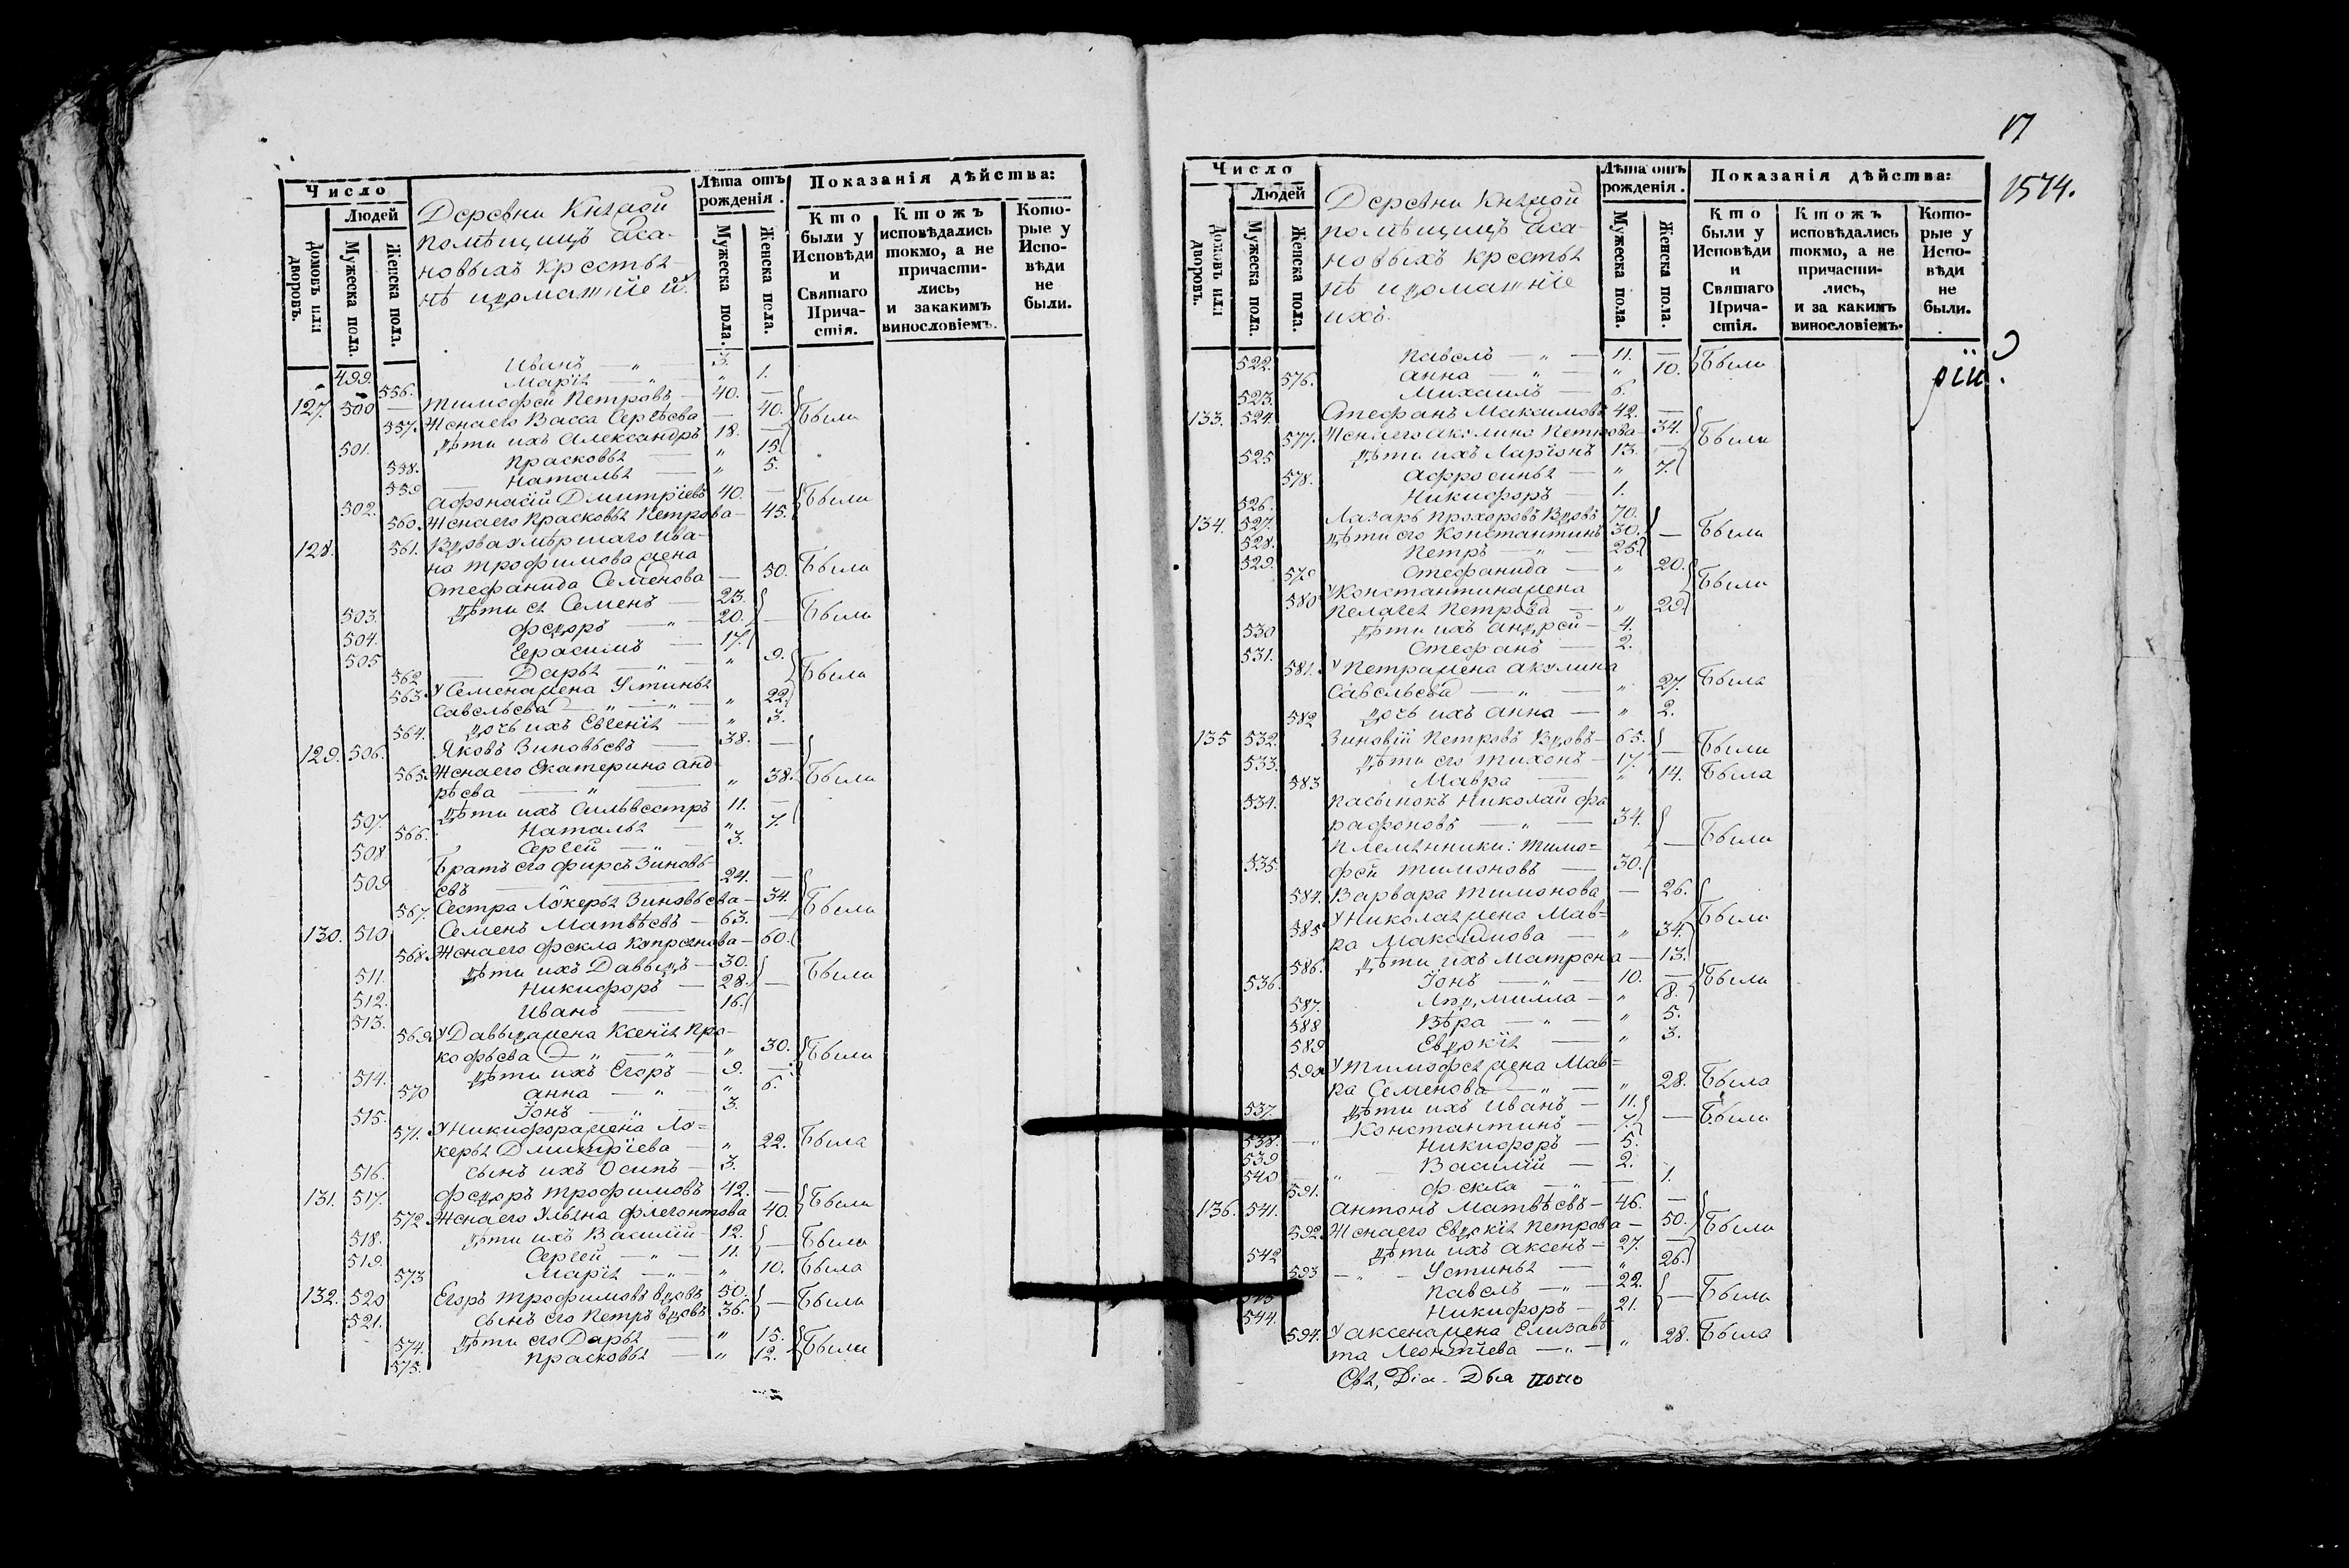 Число
Людей
Домовъ или дворовъ.
Мужеска пола.
Женска пола.
Деревни Княжой
помѣщицъ Аса-
новыхъ крестья-
нѣ и домашніе и̃.
Лѣта отъ рожденія.
Мужеска пола.
Женска пола.
Показанія дѣйства:
Кто были у Исповѣди и Святаго Прича-стія.
Ктожъ исповѣдались токмо, а не причасти-лись, и закакимъ винословіемъ.
Кото-рые у Испо-вѣди не были.
499. Иванъ — „ — 3.
556. Марія — „ — „ 1.
127. 500 Тимофей Петровъ — 40. —
557. Жена его Васса Сергѣева — 40. Были
501. Дѣти ихъ Александръ 18. —
558. Прасковья — „ 15.
559 Наталья — „ 5.
502. Афонасій Дмитріевъ 40. —
560. Жена его Прасковья Петрова — 45. Были
128. 561. Вдова умѣршаго Ива-
на Трофимова жена
Стефанида Семенова — 50. Была
503. Дѣти ея Семенъ — 23.
504. Федоръ — „ — 20. — Были
505 Герасимъ — 17.
562 Дарья — „ — „ 9.
563 У Семена жена Устинья
Савельева — „ — „ 22. Были
564. Дочь ихъ Евгенія — „ 3.
129. 506. Яковъ Зиновьевъ — 38. —
565. Жена его Екатерина Анд-
рѣева — „ — „ 38. Были
507. Дѣти ихъ Сильвестръ 11. —
566. Наталья — „ 7.
508 Сергей — „ — 3.
509 Братъ его Фирсъ Зиновь-
евъ — 24. —
567. Сестра Локерья Зиновьева — 34. Были
130. 510 Семенъ Матвѣевъ — 63. —
568. Жена его Фекла — 60.
511. Дѣти ихъ Давыдъ — 30.
512. Никифоръ — 28. — Были
513. Иванъ — 16.
569. У Давыда жена Ксенія Про-
кофьева — „ — „ 30. Были
514. Дѣти ихъ Егоръ — 9. —
570 Анна — „ — „ 6.
515. Іонъ — „ — 3.
571. У Никифора жена Ло-
керья Дмитріева — „ 22. Была
516. Сынъ ихъ Осипъ — 3.
131. 517. Федоръ Трофимовъ 42. —
572 Жена его Ульяна Флегонтова 40. Были
518. Дѣти ихъ Василій — 12.
519. Сергей — „ — 11. — Были
573 Марія — „ — „ 10. Была
132. 520 Егоръ Трофимовъ вдовъ 50.
521. Сынъ его Петръ вдовъ 36. — Были
574. Дѣти его Дарья — „ 15.
575. Прасковья — „ 12. Были
17
1574.
Число
Людей
Домовъ или дворовъ.
Мужеска пола.
Женска пола.
Деревни Княжой
помѣщицъ Аса-
новыхъ крестья
нѣ и домашніе
ихъ.
Лѣта отъ рожденія.
Мужеска пола.
Женска пола.
Показанія дѣйства:
Кто были у Исповѣди и Святаго Прича-стія.
Ктожъ исповѣдались токмо, а не причасти-лись, и за какимъ винословіемъ.
Кото-рые у Испо-вѣди не были.
522. Павелъ — „ — 11. —
576. Анна — „ — „ 10. Были
523. Михаилъ — 6.
133. 524. Стефанъ Максимовъ 42. —
577. Жена его Акулина Петрова — 34. Были
525 Дѣти ихъ Ларіонъ 13. —
578. Афросинья — „ 7.
526. Никифоръ — 1.
134. 527. Лазарь Прохоровъ вдовъ 70.
528. Дѣти его Константинъ 30. — Были
529. Петръ — „ — 25.
579 Стефанида — „ 20.
580 У Константина жена
Пелагея Петрова — „ 29. Были
530 Дѣти ихъ Андрей — 4.
531. Стефанъ — 2.
581. У Петра жена Акулина
Савельева — „ — „ 27. Была
582 Дочь ихъ Анна — „ 2.
135 532. Зиновій Петровъ вдовъ — 65.
533. Дѣти его Тихонъ — 17. — Были
583 Мавра — „ 14. Была
534. Пасынокъ Николай Фа
рафоновъ — „ — 34.
Племянники: Тимо=
535. фей Тимоновъ — 30. — Были
584. Варвара Тимонова — 26.
585 У Николая жена Мав=
ра Максимова — „ 34. Были
586. Дѣти ихъ Матрена — 13.
536. Іонъ — „ — 10. —
587. Людмилла — „ 8. Были
588 Вѣра — „ — „ 5.
589 Евдокія — „ 3.
590 У Тимофея жена Мав=
ра Семенова — „ — „ 28. Была
537. Дѣти ихъ Иванъ — 11.
538. Константинъ — 7. — Были
539 Никифоръ — 5.
540 Василій — 2.
591. Фекла — „ — 1.
136. 541. Антонъ Матвѣевъ — 46. —
592. Жена его Евдокія Петрова — 50. Были
542 Дѣти ихъ Аксенъ — 27. —
593 Устинья — „ 26.
Павелъ — „ — 22.
544. Никифоръ — 21. — Были
594. У Аксена жена Елизавѣ
та Леонтіева — „ — „ 28. Была